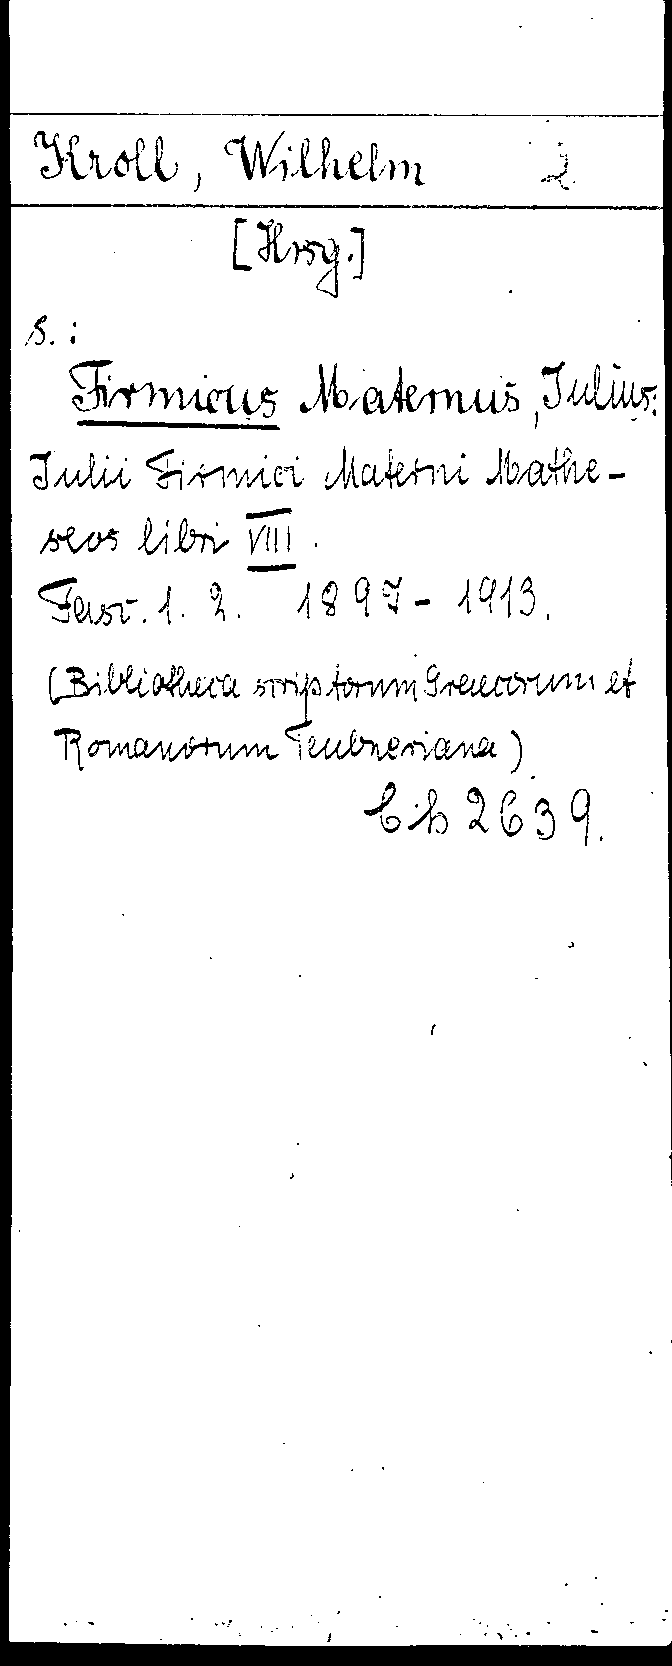 Kroll, Wilhelm 2
[Hrsg.]
s.:
Firmicus Maternus, Julius:
Julii Firmici Materni Mathe-
seos libri VIII.
Fasc. 1. 2. 1897-1913.
(Bibliotheca scriptorum Graecorum et
Romanorum Teubneriana)
Cb 2639.